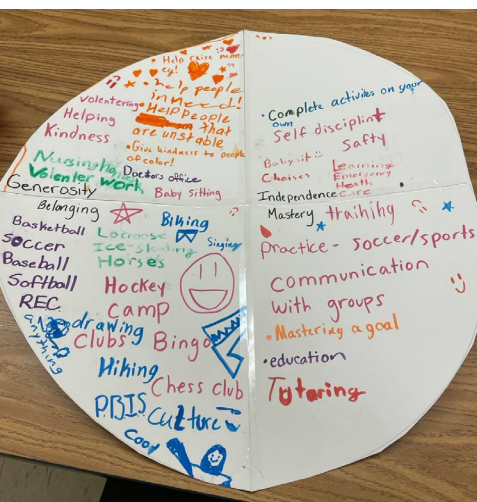 • Help raise money!
• help people
in need!
• HELP PEOPLE
that
are unstable
• Give kindness to people
of color!
Volentering
Helping
Kindness
Nursinghome
Volenter work
Doctors office
Generosity
Baby sitting
• Complete activites on your
own
Self disciplint
Safty
Babysit
Choises
Learning
Emergency
Heath
care
Independence
Belonging
Basketball
Soccer
Baseball
Softball
REC.
anything
Lacrosse
Ice-Skating
Horses
Biking
Singing
Hockey
Camp
drawing
Clubs
Bingo
Hiking
Chess club
PBIS
Culture
Cool
Mastery
training
Practice - soccer/sports
Communication
with groups
• Mastering a goal
• education
Tutoring